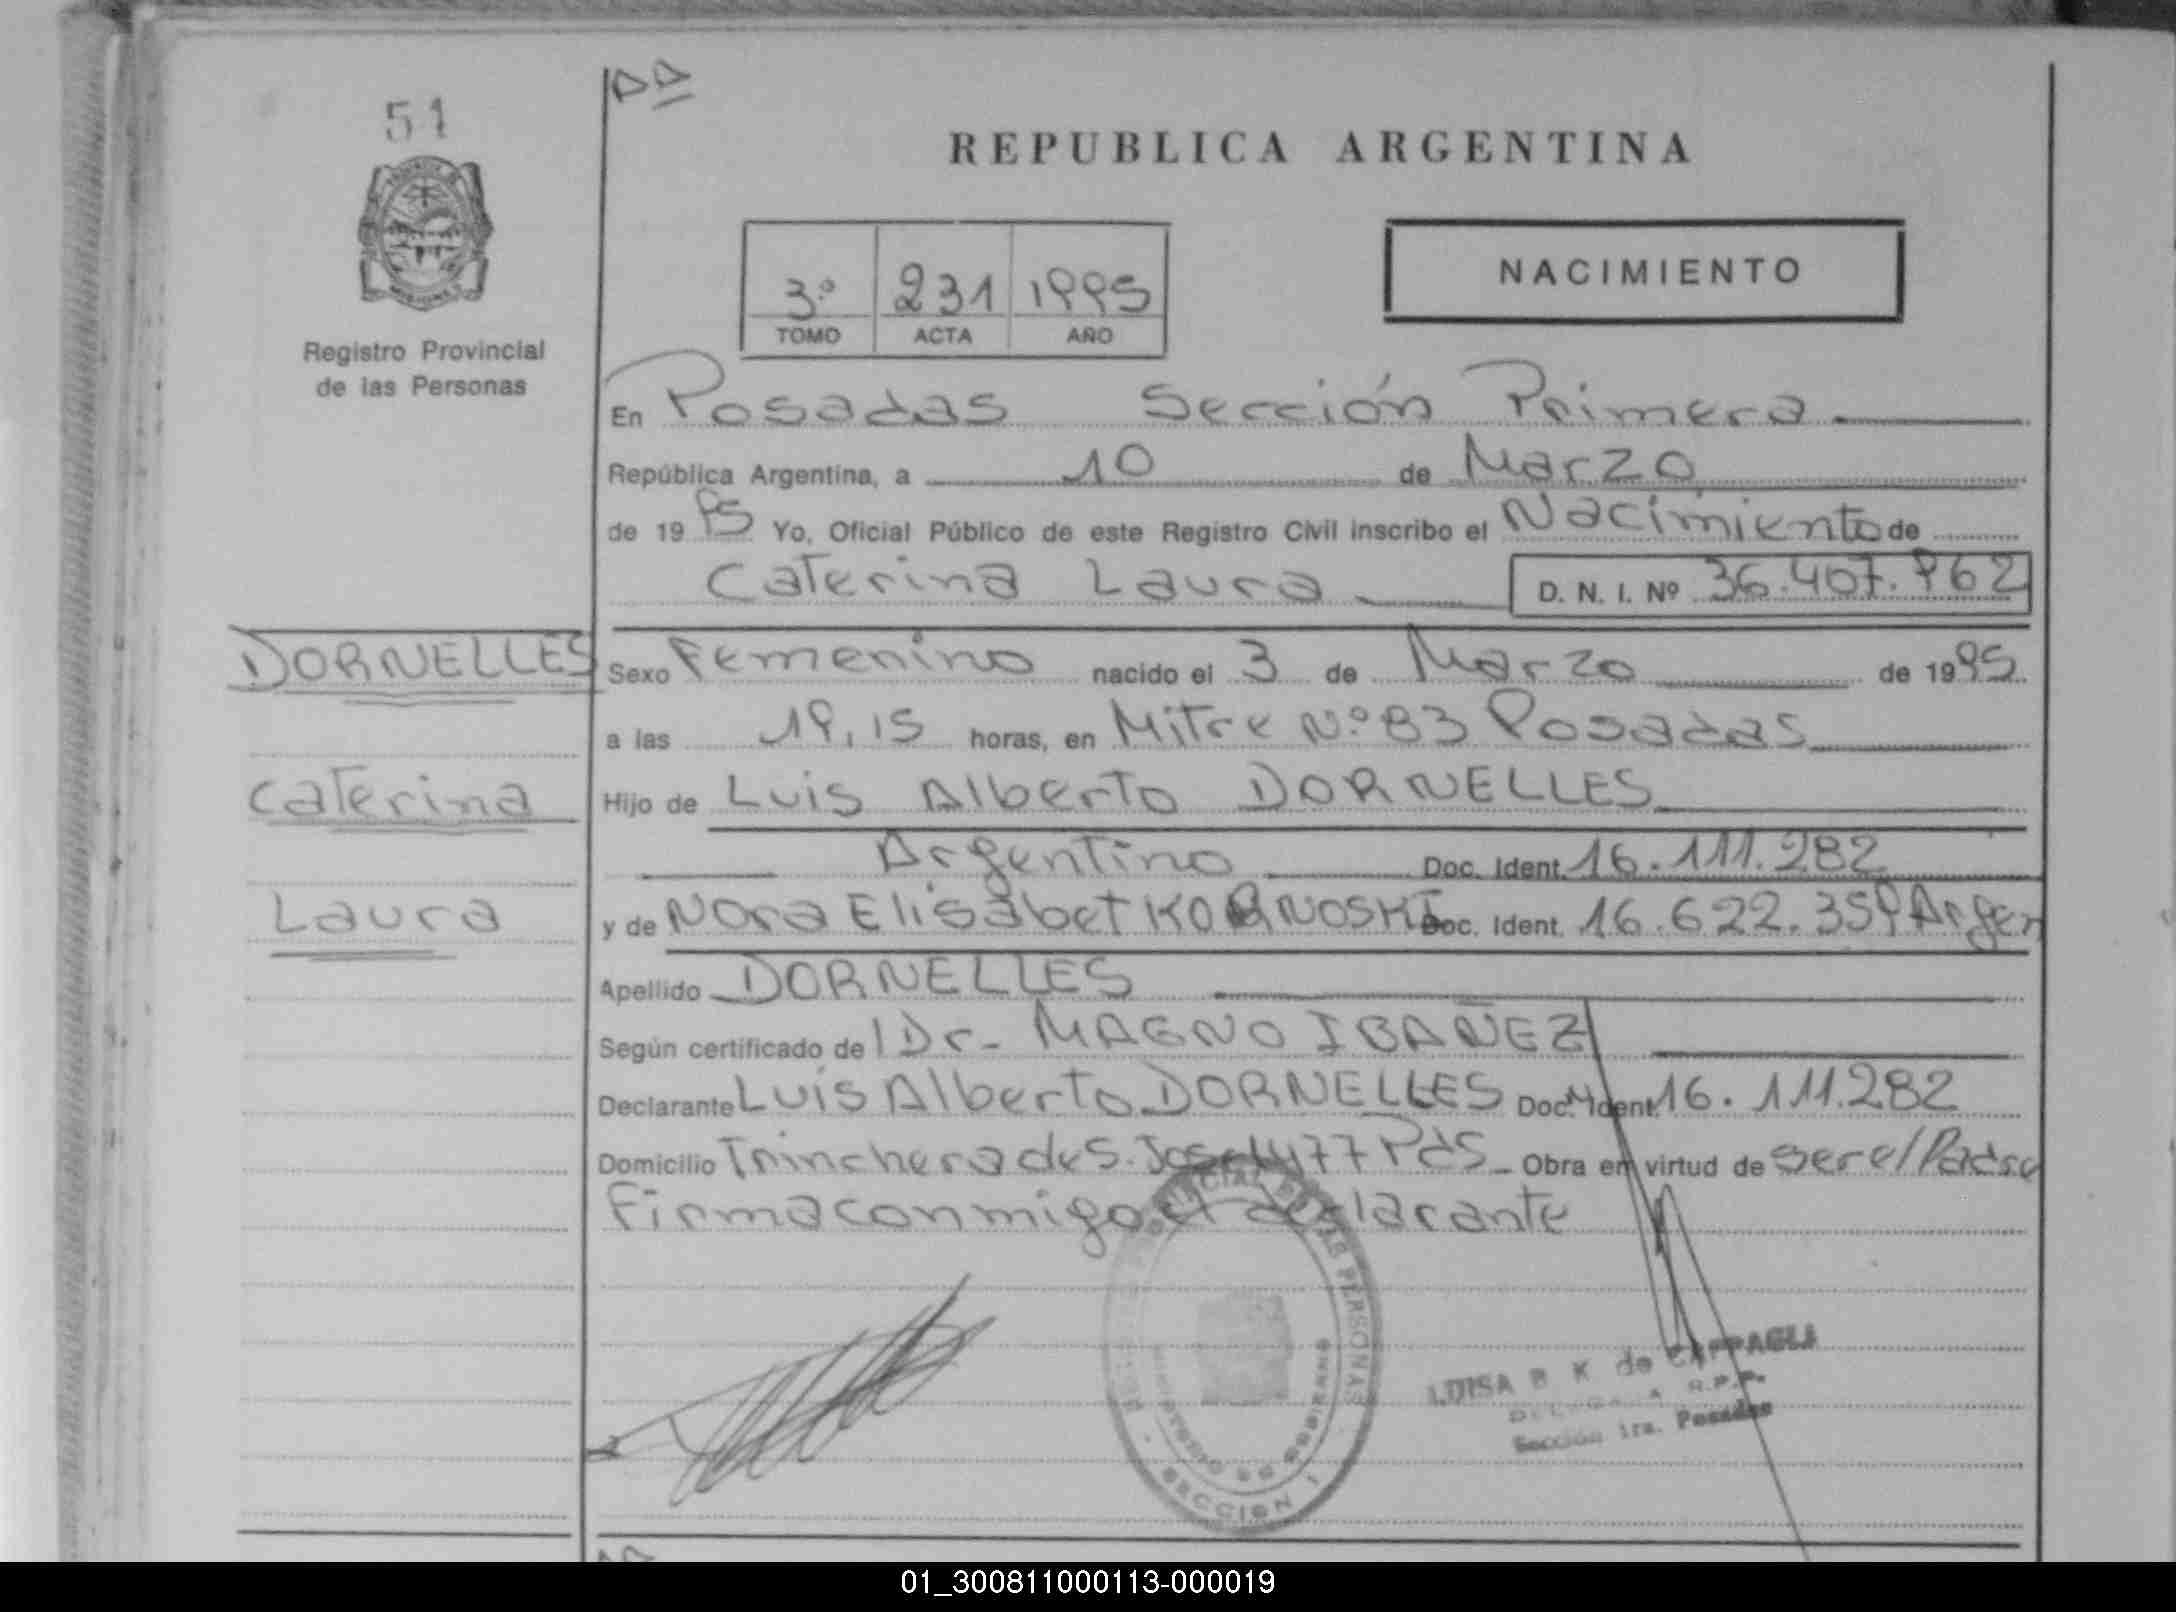 51
REPUBLICA ARGENTINA
3º 231 1995
TOMO ACTA AÑO
NACIMIENTO
Registro Provincial
de las Personas
En Posadas Sección Primera
República Argentina, a 10 de Marzo
de 1995 Yo, Oficial Público de este Registro Civil inscribo el Nacimiento de
Caterina Laura D. N. I. Nº 36.407.962
DORNELLES
Caterina
Laura
Sexo Femenino nacido el 3 de Marzo de 1995
a las 19,15 horas, en Mitre Nº 83 Posadas
Hijo de Luis Alberto DORNELLES
Argentino Doc. Ident. 16.111.282
y de Nora Elisabet KORNOSKI Doc. Ident. 16.622.359 Argen
Apellido DORNELLES
Según certificado de l Dr- MAGNO IBAÑEZ
Declarante Luis Alberto DORNELLES Doc. Ident. 16.111.282
Domicilio Trinchera de S. Jose 1477 Pdas Obra en virtud de ser el Padre
Firma conmigo el declarante
REGISTRO PROVINCIAL DE LAS PERSONAS
MINISTERIO DE GOBIERNO
SECCION 1
LUISA B K de CAPPAGLI
DELEGADA R.P.P.
Sección 1ra. Posadas
01_300811000113-000019